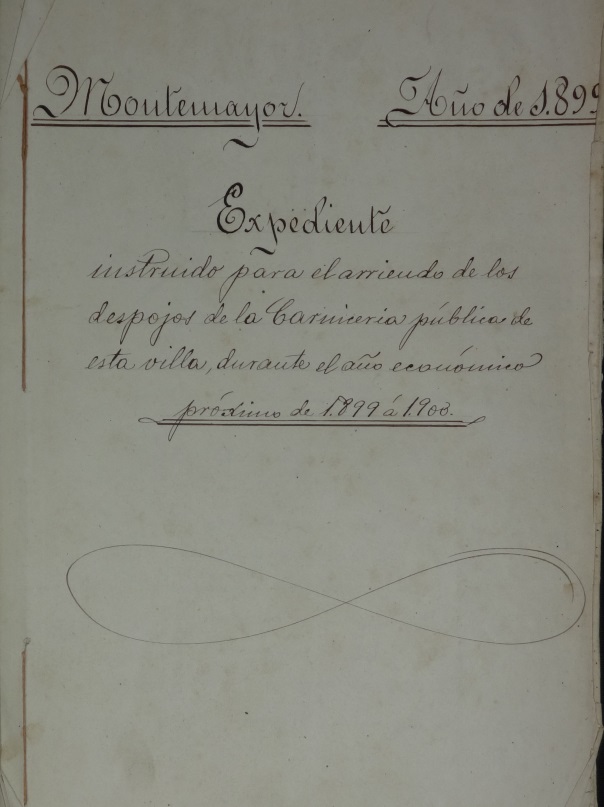 Montemayor. Año de 1.899
Expediente
instruido para el arriendo de los
despojos de la Carniceria pública de
esta villa, durante el año económico
próximo de 1.899 á 1.900.